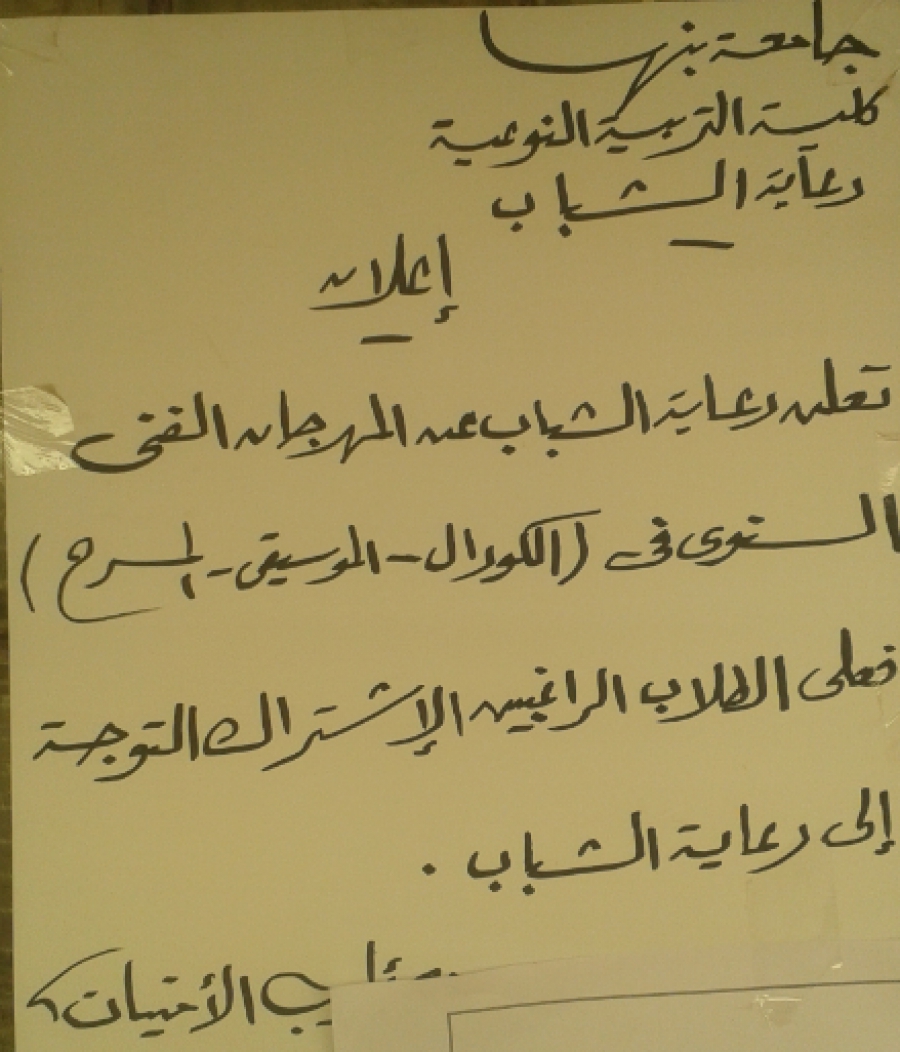 جامعة بنها
كلية التربية النوعية
رعاية الشباب
إعلان
تعلن رعاية الشباب عن المهرجان الفنى
السنوى فى (الكورال - الموسيقى - المسرح)
فعلى الطلاب الراغبين الإشتراك التوجة
إلى رعاية الشباب .
الأمنيات